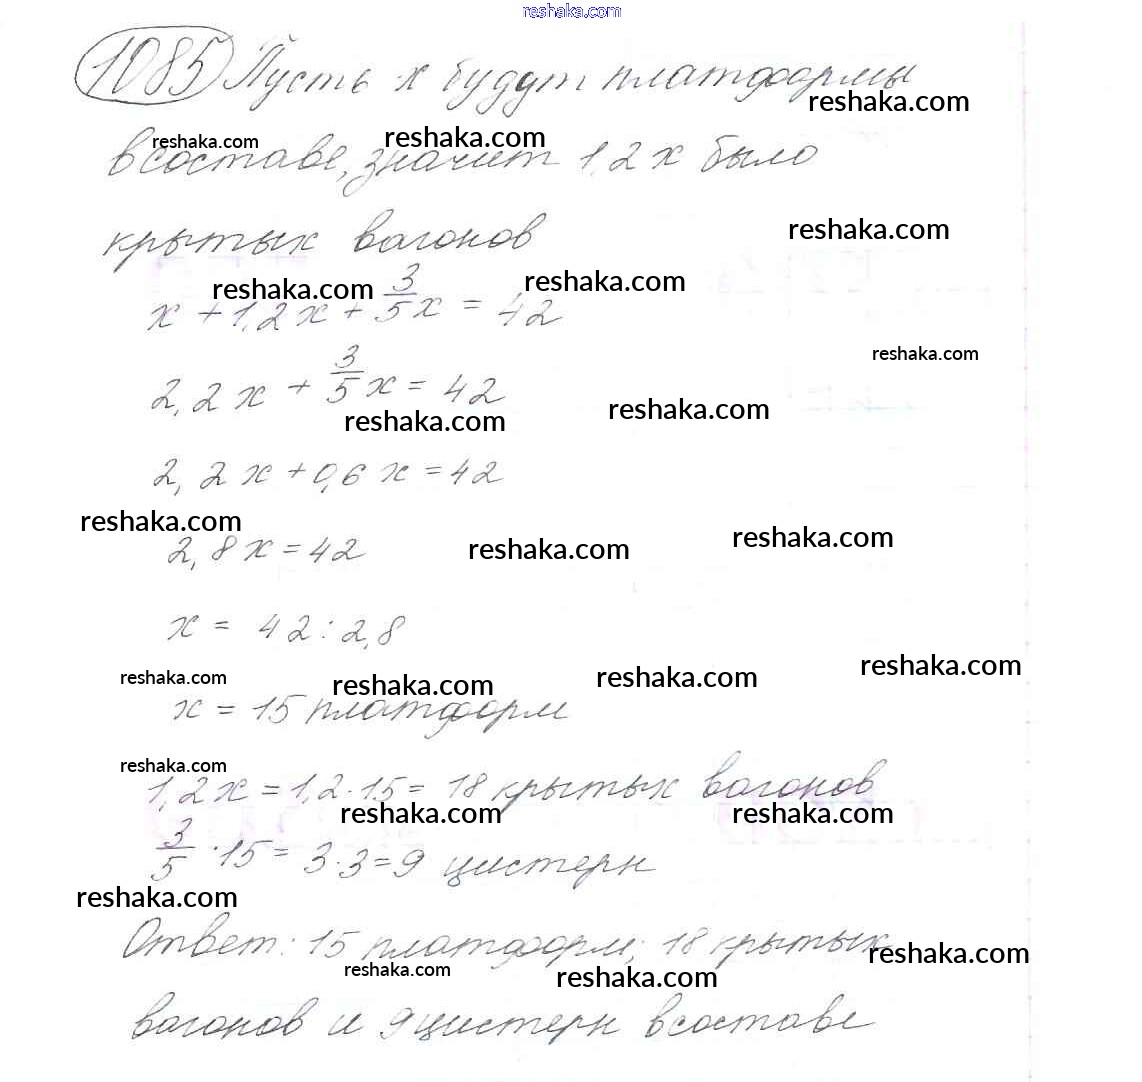 reshaka.com
1085 Пусть x будут платформы
reshaka.com
reshaka.com reshaka.com
в составе, значит 1,2 x было
reshaka.com
крытых вагонов
reshaka.com reshaka.com
x + 1,2x + 3/5 x = 42
reshaka.com
2,2x + 3/5 x = 42
reshaka.com reshaka.com
2,2x + 0,6x = 42
reshaka.com
reshaka.com reshaka.com
2,8x = 42
x = 42 : 2,8
reshaka.com reshaka.com reshaka.com reshaka.com
x = 15 платформ
reshaka.com
1,2x = 1,2 · 15 = 18 крытых вагонов
reshaka.com reshaka.com
3/5 · 15 = 3 · 3 = 9 цистерн
reshaka.com
Ответ: 15 платформ; 18 крытых
reshaka.com reshaka.com reshaka.com
вагонов и 9 цистерн в составе